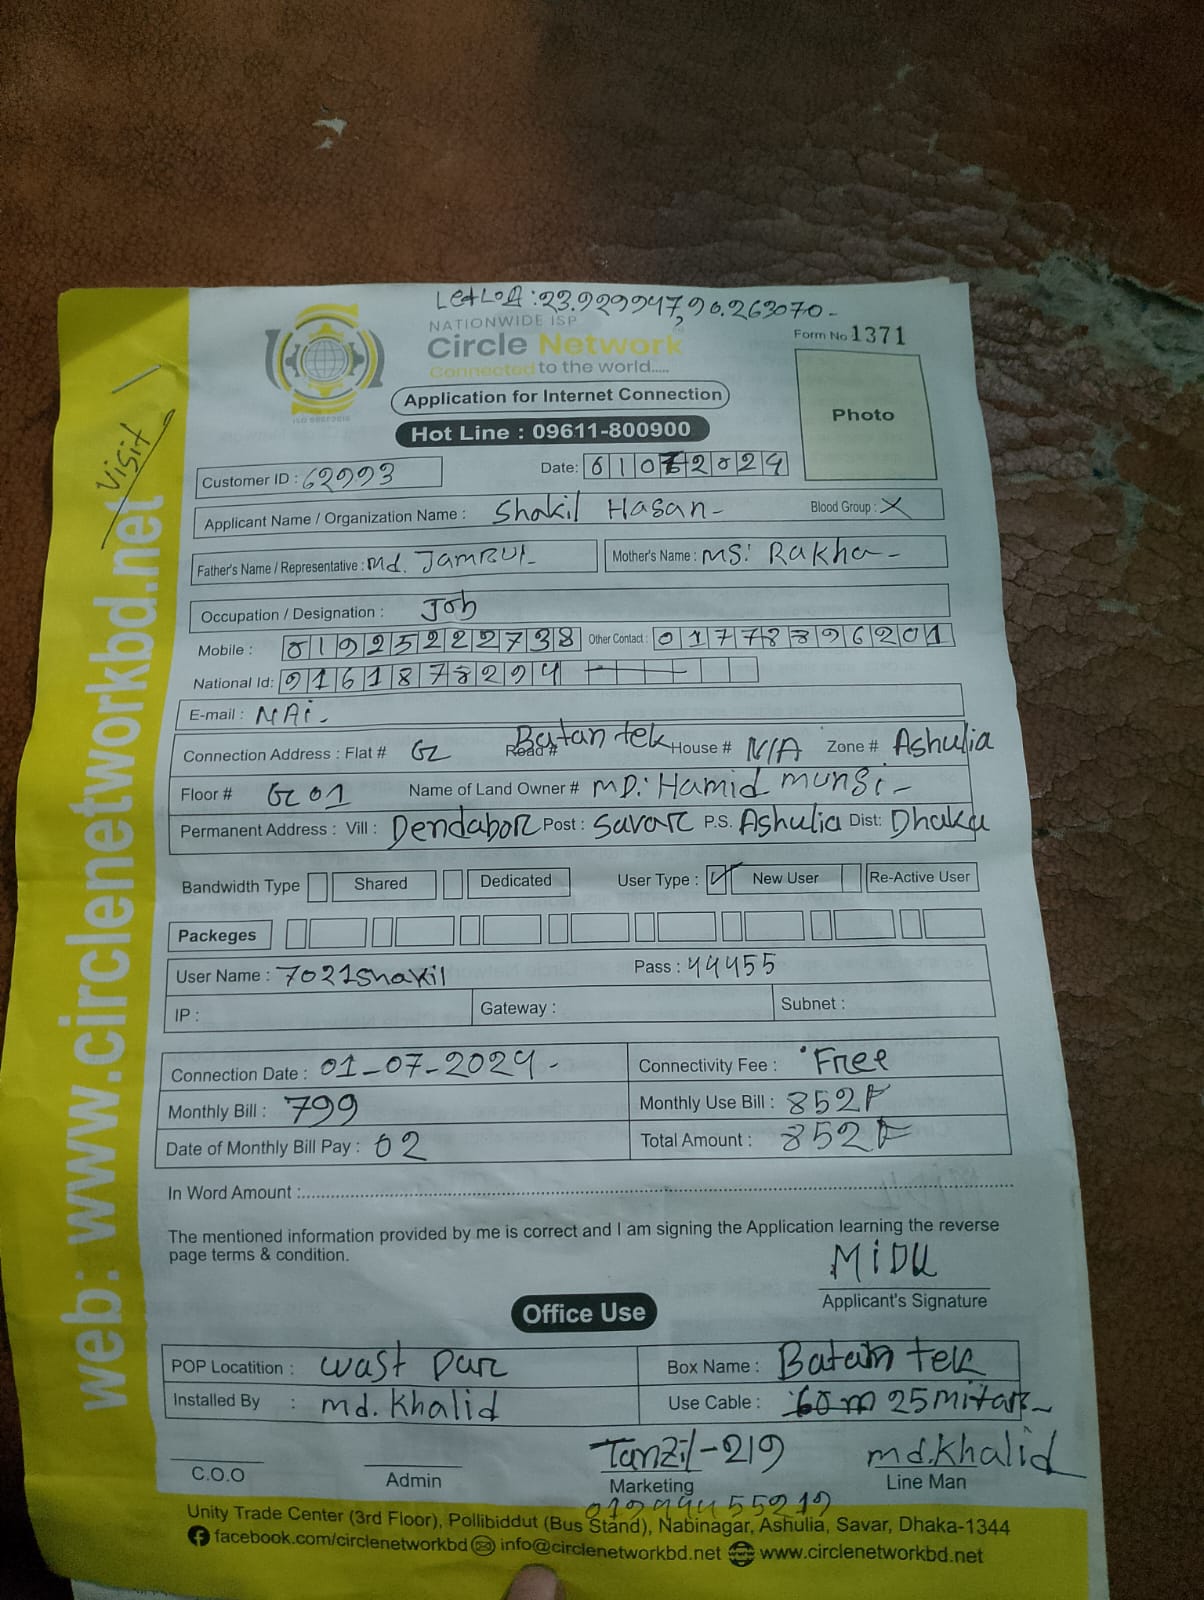 LetLoA : 23.929947, 90.263070 -
NATIONWIDE ISP
Circle Network
Connected to the world.....
Form No 1371
Application for Internet Connection
Photo
Hot Line : 09611-800900
Visit
Customer ID : 62993
Date:
Applicant Name / Organization Name : Shakil Hasan - Blood Group : X
Father's Name / Representative : Md. JamRUl - Mother's Name : MS: Rakha -
Occupation / Designation : Job
Mobile : 01925222738 Other Contact : 01778396201
National Id: 9161878294
E-mail : NAi -
Connection Address : Flat # G Road # Batan tek House # N/A Zone # Ashulia
Floor # G 01 Name of Land Owner # MD: Hamid munsi -
Permanent Address : Vill : Dendabor Post : Savar P.S. Ashulia Dist: Dhaka
Bandwidth Type Shared Dedicated User Type : ✓ New User Re-Active User
Packeges
User Name : 7021Shakil Pass : 44455
IP : Gateway : Subnet :
Connection Date : 01-07-2024 - Connectivity Fee : Free
Monthly Bill : 799 Monthly Use Bill : 852
Date of Monthly Bill Pay : 02 Total Amount : 852
In Word Amount :
The mentioned information provided by me is correct and I am signing the Application learning the reverse
page terms & condition.
MiDU
Applicant's Signature
Office Use
POP Locatition : wast Par Box Name : Batan tek
Installed By : md. Khalid Use Cable : 25 Mitar -
Tanzil-219 md.Khalid
C.O.O Admin Marketing Line Man
Unity Trade Center (3rd Floor), Pollibiddut (Bus Stand), Nabinagar, Ashulia, Savar, Dhaka-1344
facebook.com/circlenetworkbd info@circlenetworkbd.net www.circlenetworkbd.net
web: www.circlenetworkbd.net